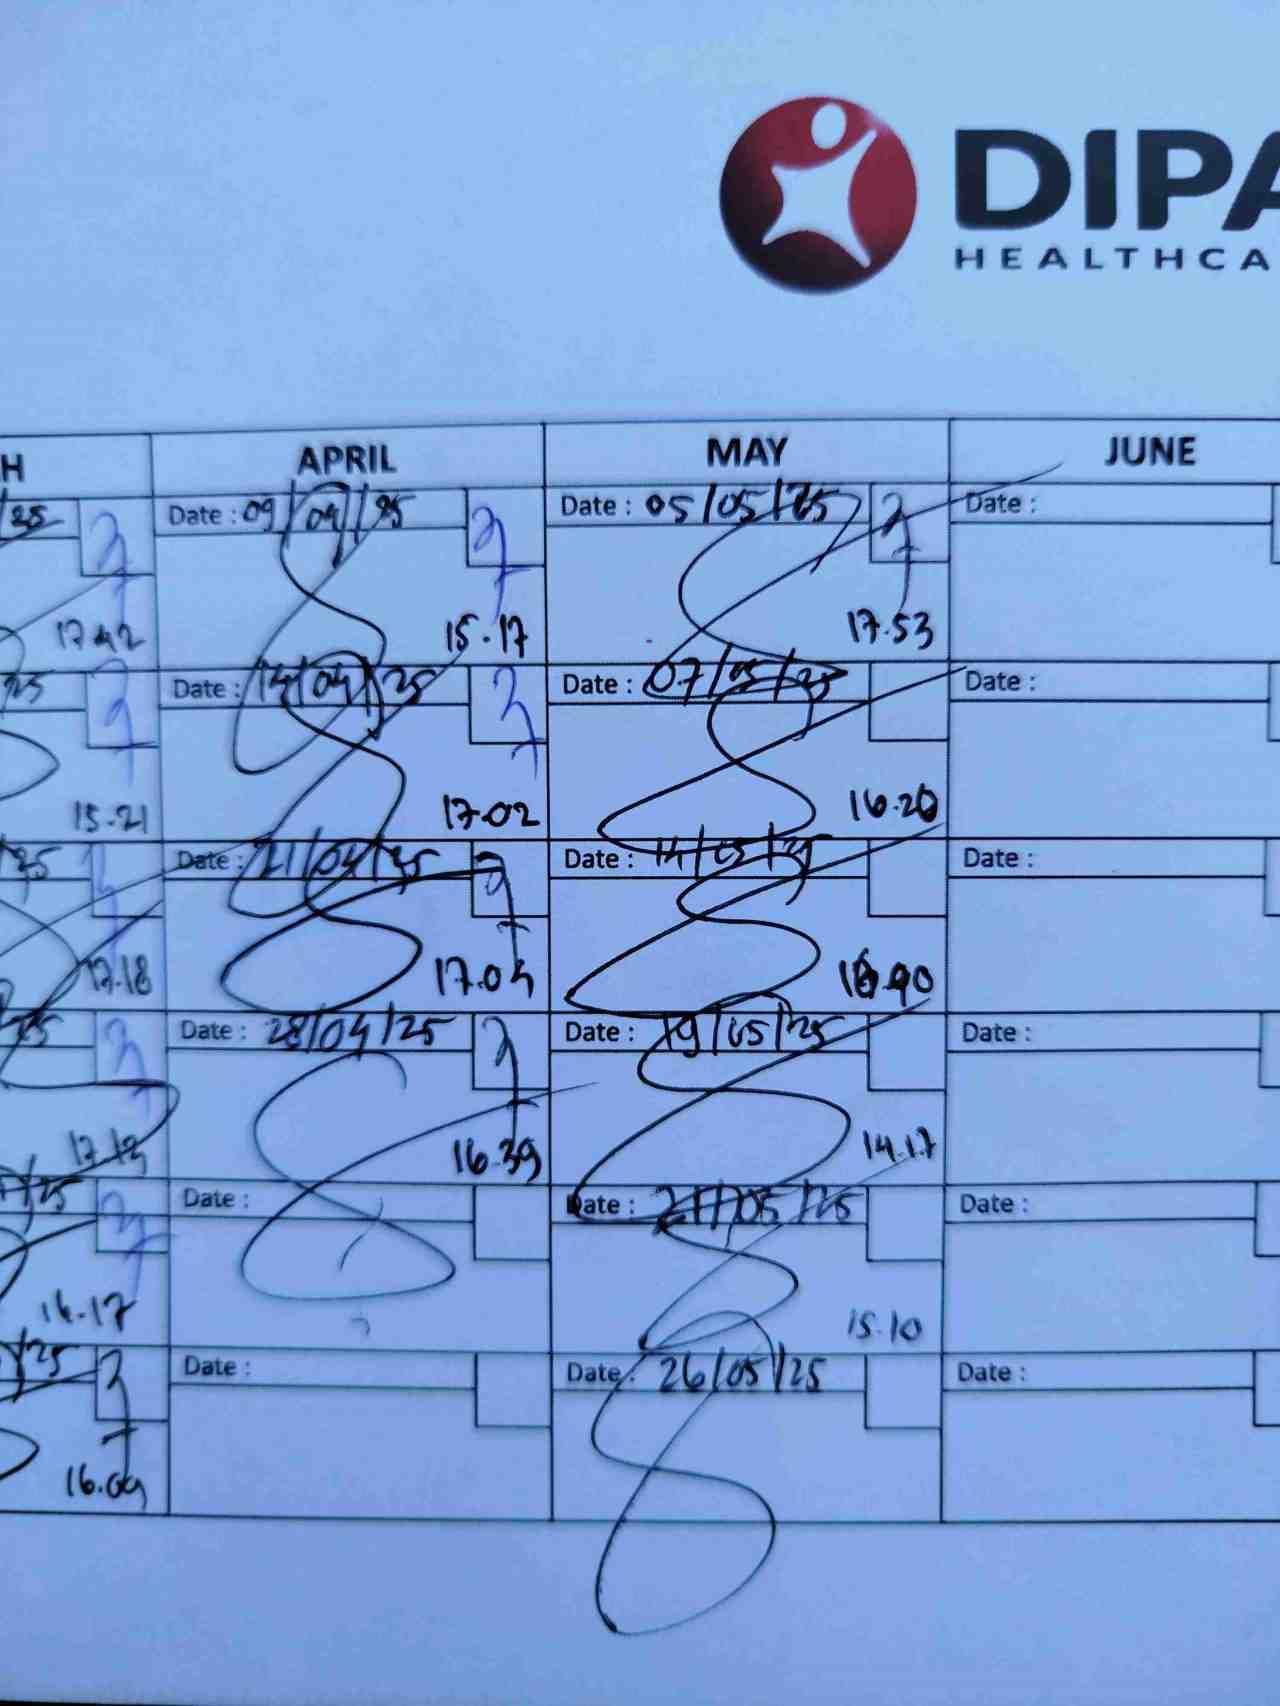 DIPA
HEALTHCA
H APRIL MAY JUNE
/25 Date : 09/04/25 Date : 05/05/25 Date :
17.42 15.17 17.53
25 Date : 14/04/25 Date : 07/05/25 Date :
15.21 17.02 16.20
/25 Date : 21/04/25 Date : 14/05/25 Date :
17.18 17.04
25 Date : 28/04/25 Date : 19/05/25 Date :
17.13 16.39 14.17
/25 Date : Date : 21/05/25 Date :
16.17 15.10
/25 Date : Date : 26/05/25 Date :
16.09